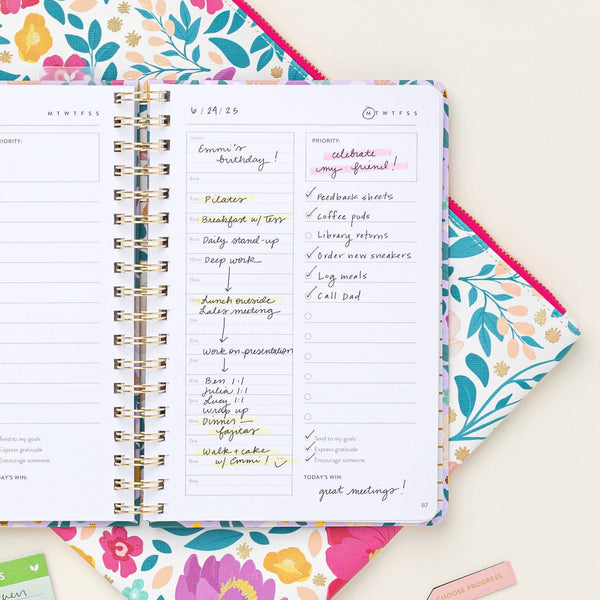 MTWTFSS
IORITY:
Tend to my goals
Express gratitude
Encourage someone
TODAY'S WIN:
6/24/25
MTWTFSS
Emmi's
birthday!
6AM
7AM Pilates
8AM Breakfast w/ Tess
9AM Daily stand-up
10AM Deep work
12PM Lunch outside
Sales meeting
1PM
2PM
3PM Work on presentation
4PM
Ben 1:1
5PM Julia 1:1
Lucy 1:1
6PM Wrap up
Dinner —
fajitas
7PM
Walk + cake
8PM w/ Emmi!
9PM
PRIORITY:
celebrate
my friend!
Feedback sheets
Coffee pods
Library returns
Order new sneakers
Log meals
Call Dad
Tend to my goals
Express gratitude
Encourage someone
TODAY'S WIN:
great meetings!
87
CHOOSE PROGRESS